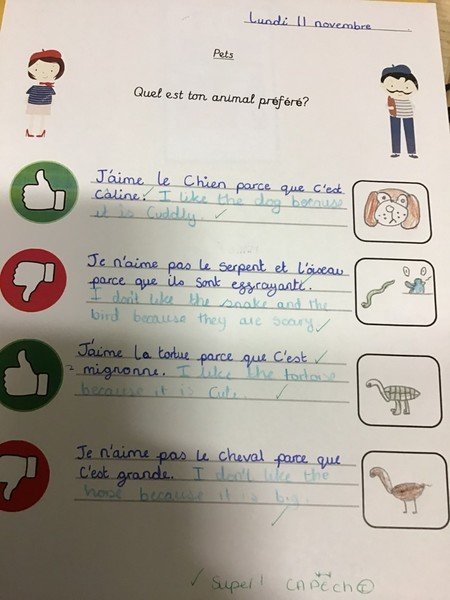 Lundi 11 novembre
Pets
Quel est ton animal préféré?
J'aime le Chien parce que C'est
câline. I like the dog because
it is Cuddly.
Je n'aime pas le Serpent et l'oiseau
parce que ils sont effrayants.
I don't like the snake and the
bird because they are scary
J'aime la tortue parce que C'est
mignonne. I like the tortoise
because it is Cute.
Je n'aime pas le Cheval parce que
C'est grande. I don't like the
horse because it is big.
Super!